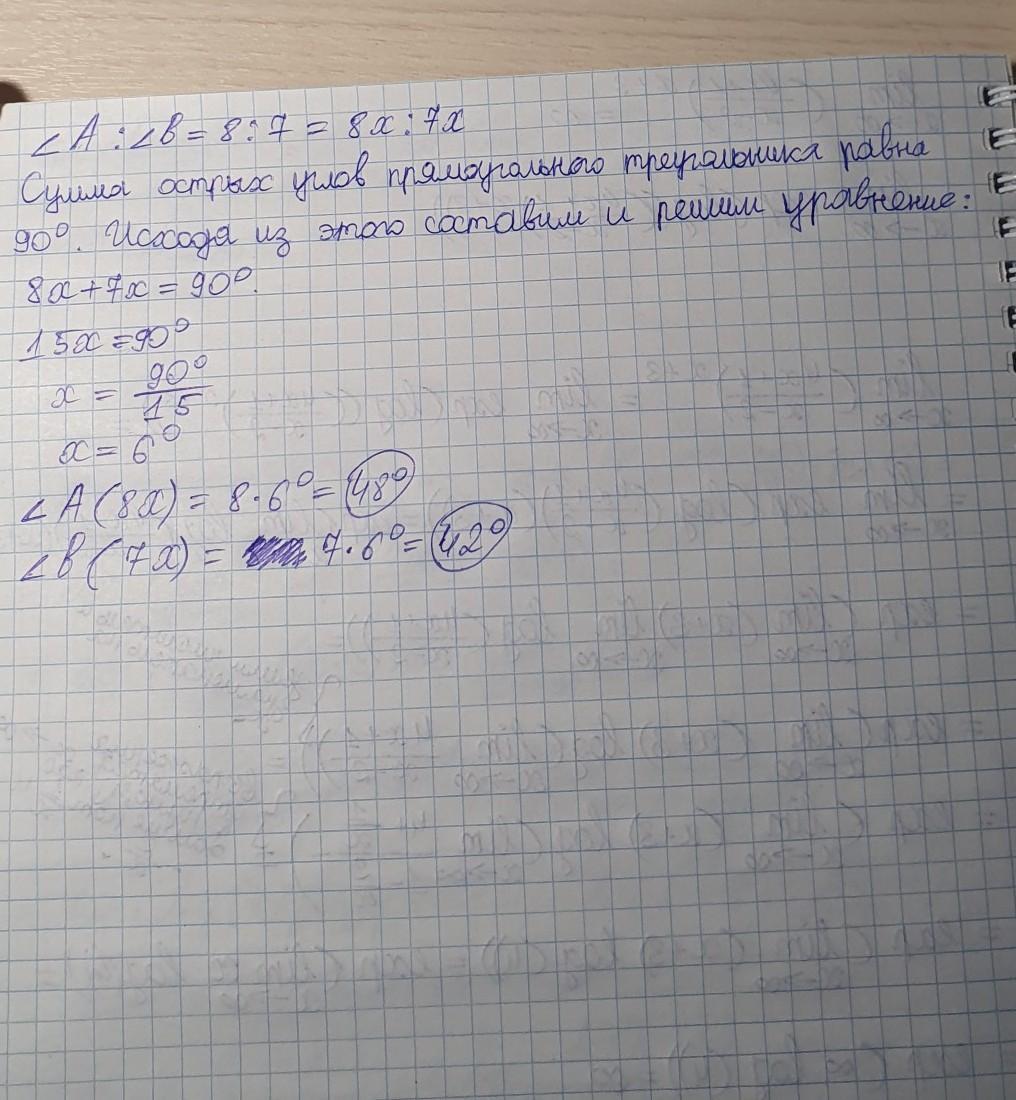 ∠A : ∠B = 8 : 7 = 8x : 7x
Сумма острых углов прямоугольного треугольника равна
90°. Исходя из этого составим и решим уравнение:
8x + 7x = 90°.
15x = 90°
x = 90° / 15
x = 6°
∠A (8x) = 8 · 6° = 48°
∠B (7x) = 7 · 6° = 42°